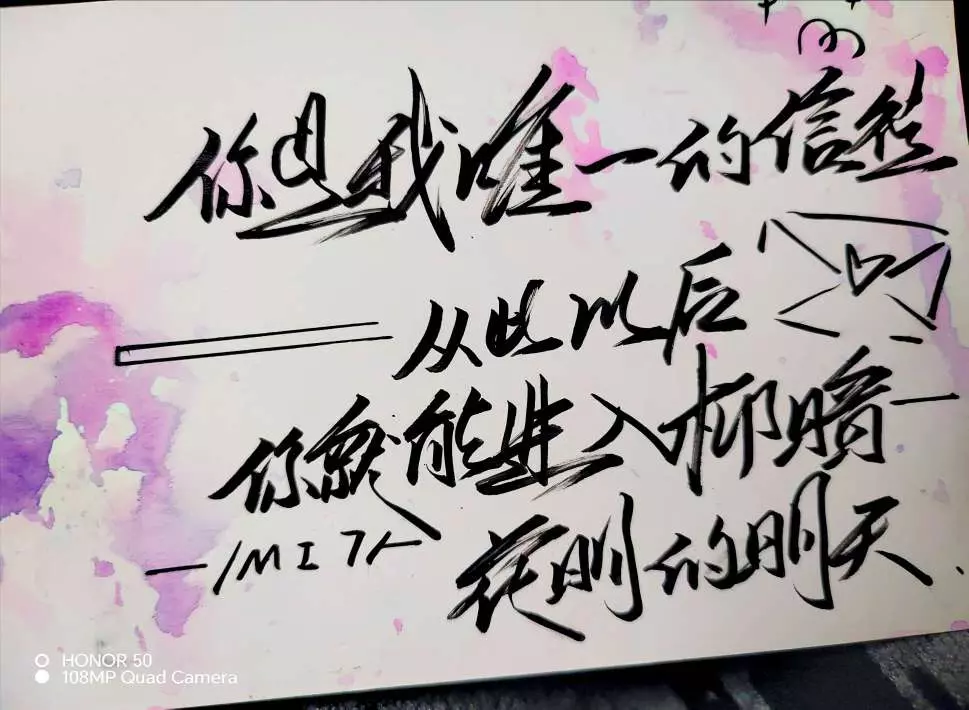 你是我唯一的信徒
从此以后
你就能进入柳暗
花明的明天
HONOR 50
108MP Quad Camera